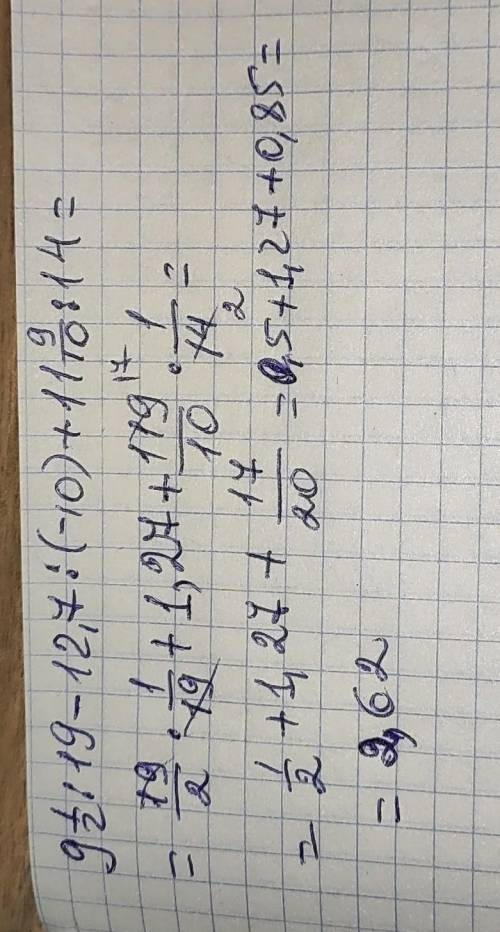 9 1/2 : 19 - 12,7 : (-10) + 11 9/10 : 14 =
= 19/2 · 1/19 + 1,27 + 119 17/10 · 1/14 2 =
= 1/2 + 1,27 + 17/20 = 0,5 + 1,27 + 0,85 =
= 2,62